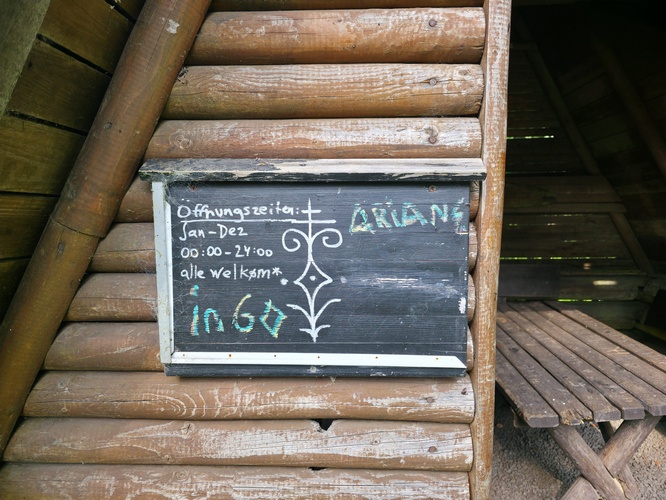 Öffnungszeiten:
Jan-Dez
00:00-24:00
alle welkøm*
inGO
ARIANE